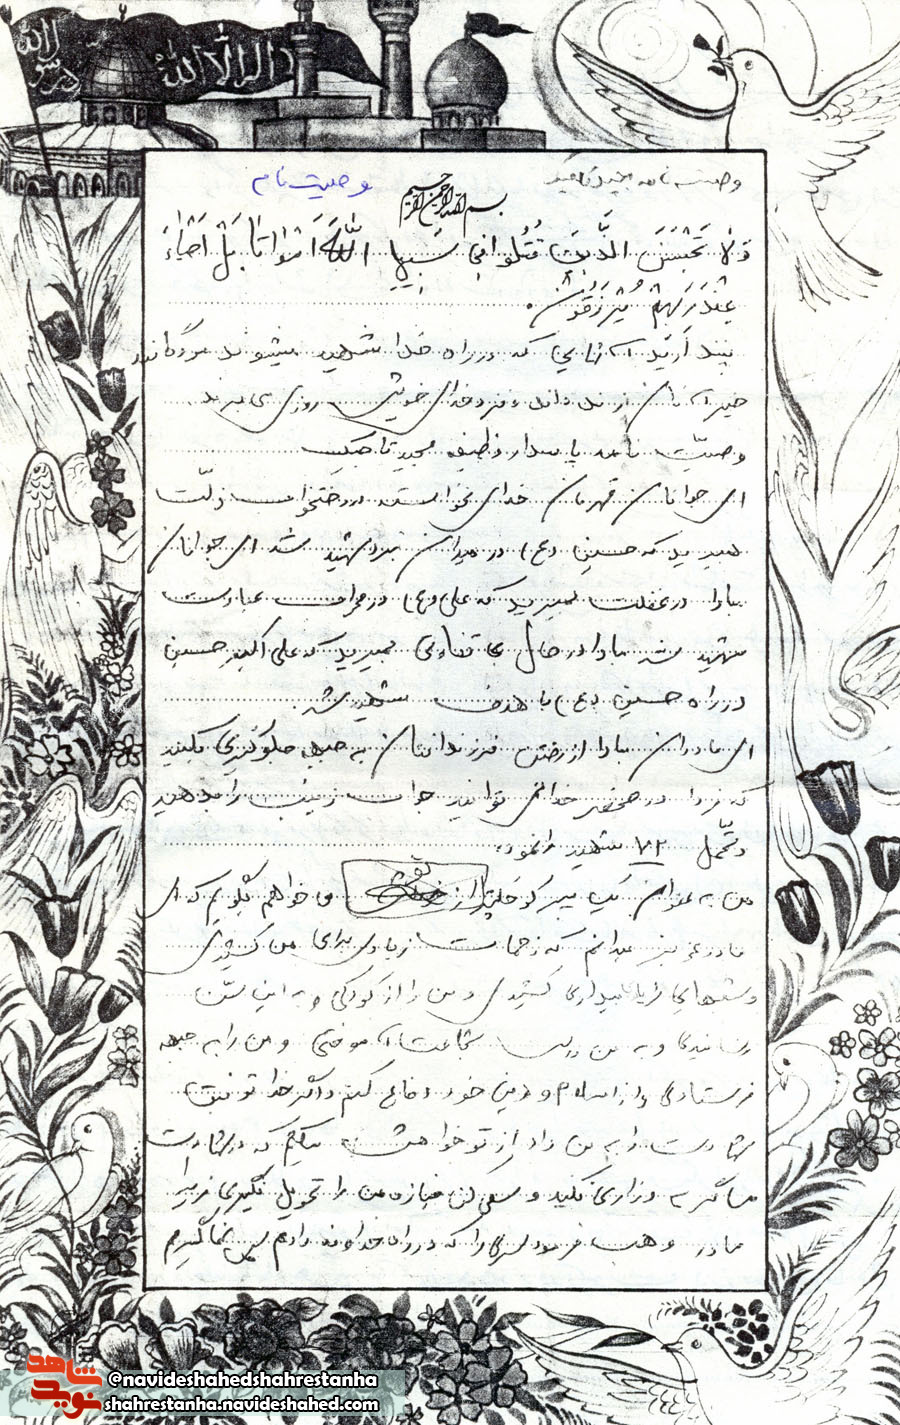 لا اله الا الله
محمد رسول الله
وصیت نامه مجید تاجیک
وصیت نامه
بسم الله الرحمن الرحیم
وَلا تَحْسَبَنَّ الَّذینَ قُتِلُوا فی سَبیلِ اللّه اَمْواتاً بَلْ اَحْیاءٌ
عِنْدَ رَبِّهِمْ یُرْزَقُونَ.
پندارید آنهایی که در راه خدا شهید میشوند مردگانند
خیر آنان زنده‌اند و نزد خدای خویش روزی می‌برند
وصیت نامه پاسدار وظیفه مجید تاجیک
ای جوانان قهرمان خدای نخواسته در رختخواب ذلت
نمیرید که حسین (ع) در میدان نبرد شهید شد ای جوانان
مبادا در غفلت بمیرید که علی (ع) در محراب عبادت
شهید شد مبادا در حال بی تفاوتی بمیرید که علی اکبر حسین
در راه حسین (ع) با هدف شهید شد
ای مادران مبادا از رفتن فرزندانتان به جبهه جلوگیری بکنید
که فردا در محضر خدا نمی توانید جواب زینب را بدهید
و تحمل ۷۲ شهید را نمود.
من به عنوان یک پسر کوچکتر از می خواهم بگویم که ای
مادر عزیز میدانم که زحمات زیادی برای من کشیدی
و شبهای زیاد بیداری کشیدی و من را از کودکی و به این سن
رساندی و به من درس شجاعت آموختی و من را به جبهه
فرستادی و از اسلام و دین خود دفاع کنم و اگر خدا توفیق
شهادت را به من داد از تو خواهش میکنم که در شهادت
من گریه و زاری نکنید و سعی کن جنازه من را تحویل نگیری زیرا
مادر وهب فرمود سری را که در راه خداوند دادم پس نمیگیرم
شاهد
نوید
@navideshahedshahrestanha
shahrestanha.navideshahed.com